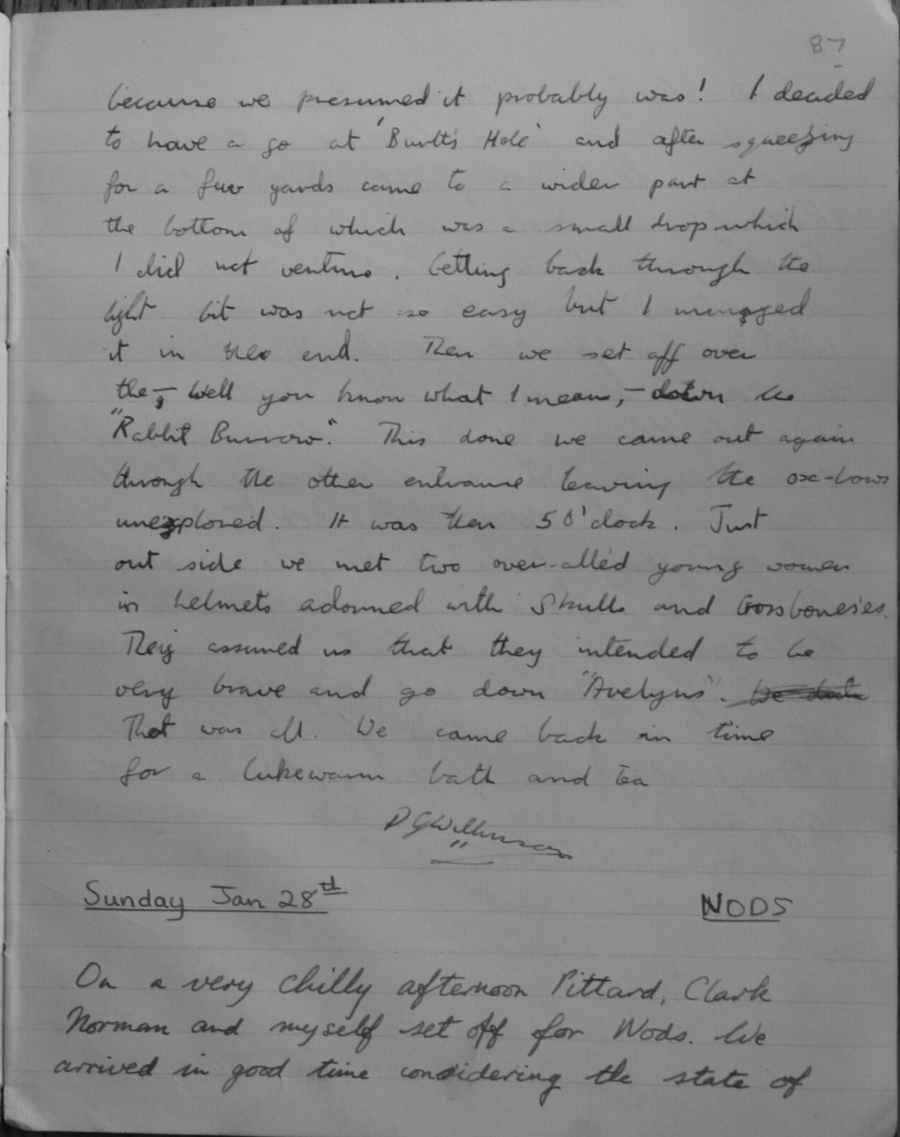 87
because we presumed it probably was! I decided
to have a go at 'Burtts Hole' and after squeezing
for a few yards came to a wider part at
the bottom of which was a small drop which
I did not venture. Getting back through the
tight bit was not so easy but I managed
it in the end. Then we set off over
the,— Well you know what I mean,— down the
"Rabbit Burrow". This done we came out again
through the other entrance leaving the ox-bows
unexplored. It was then 5 O'clock. Just
out side we met two over-alled young women
in helmets adorned with Skulls and Crossbones'es.
They assured us that they intended to be
very brave and go down "Avelyns".
That was all. We came back in time
for a lukewarm bath and tea
D G Wilkinson
Sunday Jan 28th NODS
On a very chilly afternoon Pittard, Clark
Norman and myself set off for Nods. We
arrived in good time considering the state of